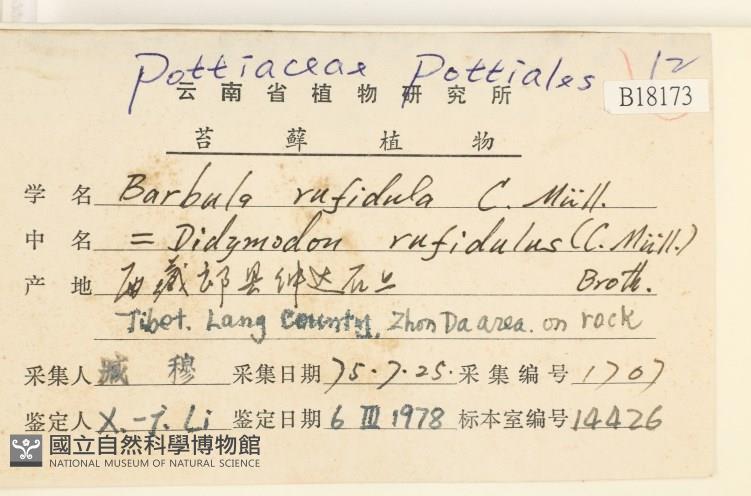 Pottiaceae Pottiales 12
云南省植物研究所
B18173
苔藓植物
学名 Barbula rufidula C. Müll.
中名 = Didymodon rufidulus (C. Müll.)
产地 西藏郎县仲达石上 Broth.
Tibet. Lang County, Zhon Da area. on rock
采集人 臧穆 采集日期 75.7.25. 采集编号 1707
鉴定人 X.-J. Li 鉴定日期 6 III 1978 标本室编号 14426
國立自然科學博物館
NATIONAL MUSEUM OF NATURAL SCIENCE